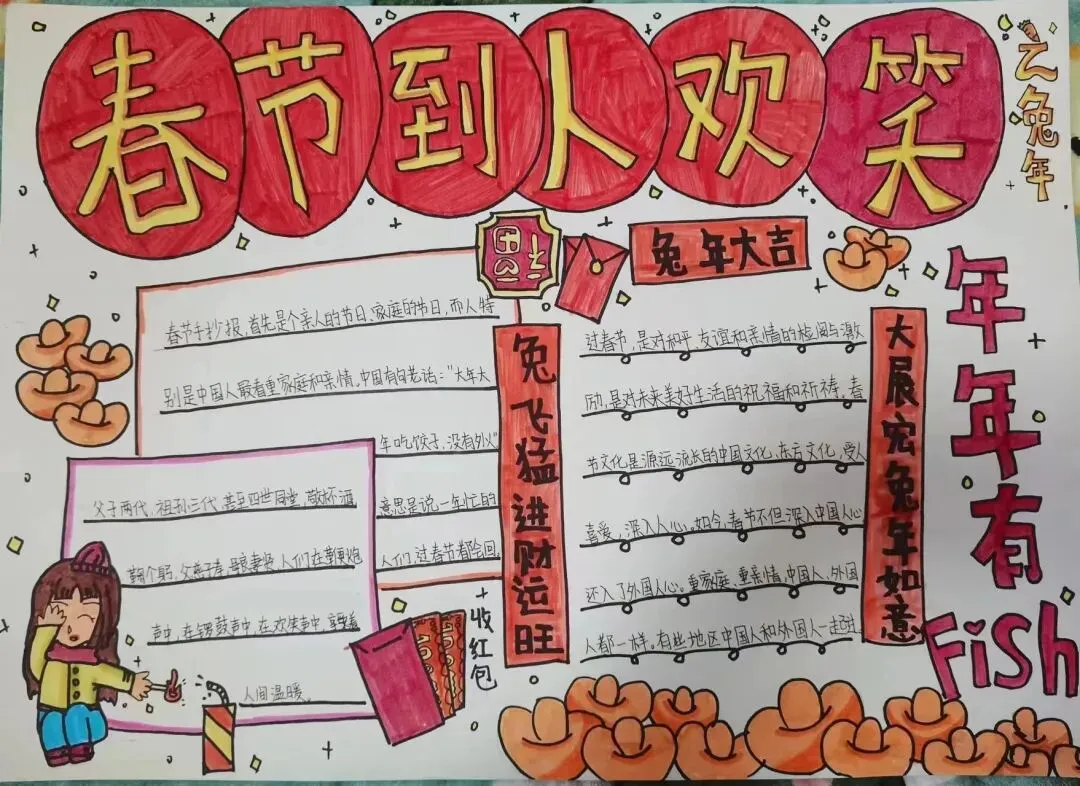 春节到人欢笑
之兔年
福
兔年大吉
年年有
Fish
春节手抄报,首先是个亲人的节日、家庭的节日,而人特
别是中国人最看重家庭和亲情。中国有句老话:"大年大
年吃饺子,没有外人"
意思是说一年忙的
人们,过春节都会回
父子两代,祖孙三代,甚至四世同堂,敬杯酒
鞠个躬,父慈子孝,
人们在鞭炮
声中,在锣鼓声中,在欢笑声中,享受着
人间温暖。
收红包
兔飞猛进财运旺
过春节,是对和平、友谊和亲情的检阅与激
励,是对未来美好生活的祝福和祈祷。春
节文化是源远流长的中国文化,东方文化,受人
喜爱,深入人心。如今,春节不但深入中国人心
还入了外国人心。重家庭、重亲情,中国人、外国
人都一样。有些地区中国人和外国人一起过
大展宏兔年如意